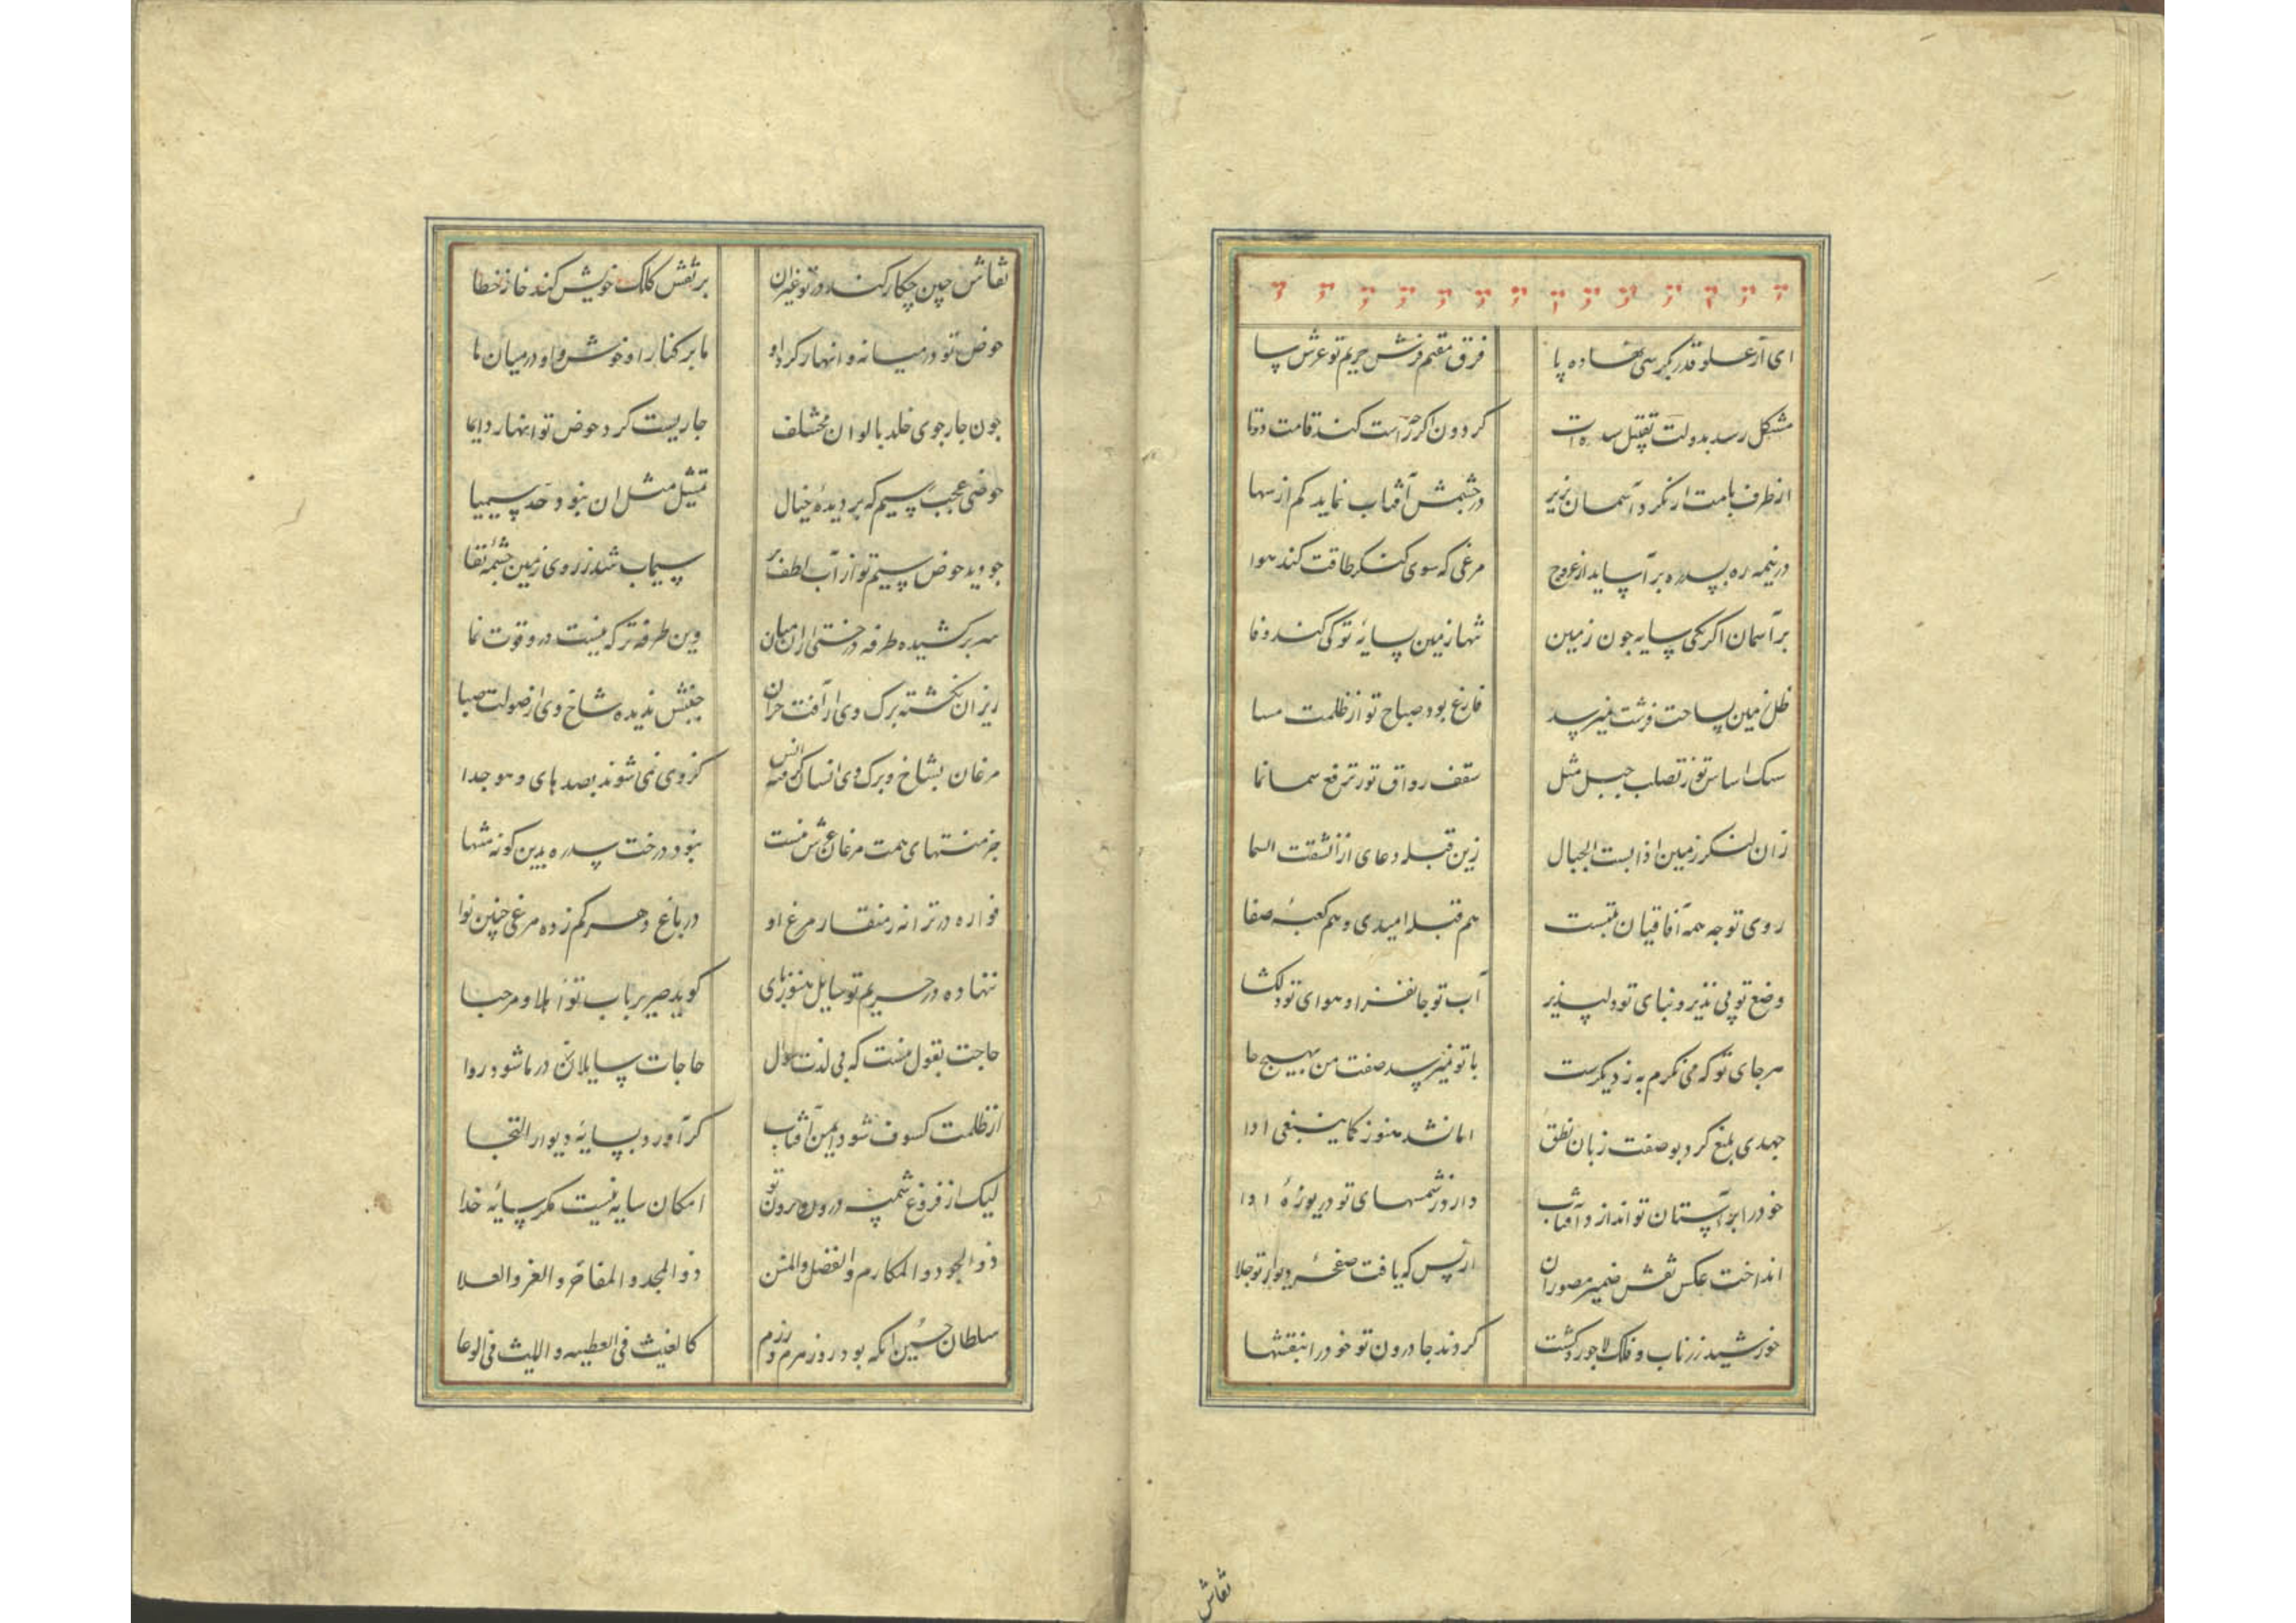 ای از علو قدر بکرسی نهاده پا فرق مقیم فرش حریم تو عرش سا
مشکل رسد بدولت تقبیل سده ات کردون اکر چه راست کند قامت دوتا
از طرف بامت ار نکرد آسمان بزیر در چشمش آفتاب نماید کم از سها
در نیمه ره بسدره بر آساید از عروج مرغی که سوی کنکر طاقت کند هوا
بر آسمان اکر فکنی سایه چون زمین تنها زمین بسایهٔ تو کی کند وفا
ظل زمین بساحت فرشت نمیرسد فارغ بود صباح تو از ظلمت مسا
سنک اساس تو ز تصلب جبل مثل سقف رواق تو ز ترفع سما نما
زان لنکر زمین اذا بست الجبال زین قبله دعای اذ انشقت السما
روی توجه همه آفاقیان بتست هم قبلهٔ امیدی و هم کعبهٔ صفا
وضع تو بی نذیر و بنای تو دلپذیر آب تو جانفزا و هوای تو دلکشا
هر جای تو که می نکرم به ز دیکرست با تو نمیرسد صفت من بهیچ جا
جهدی بلیغ کرد بوصفت زبان نطق اما نشد هنوز کما ینبغی ادا
خود را بر آستان تو اندازد آفتاب دارد ز شمسهای تو دریوزهٔ
انداخت عکس نقش ضمیر مصوران از بس که یافت صفحهٔ دیوار تو جلا
خورشید زر ناب و فلک لاجورد کشت کردند جا درون تو خود را بنقشها
نقاش
نقاش چین چکار کند در تو غیر ان بر نقش کلک خویش کند خازن خطا
حوض تو در میانه و انهار کرد او ما بر کنار او خوش و او در میان ما
چون چار جوی خلد بالوان مختلف جاریست کرد حوض تو انهار دایما
حوضی عجب ز سیم که بر دیدهٔ خیال تمثیل مثل ان نبود حد سیمیا
چو دید حوض سیم تو از آب لطف پر سیماب شد ز روی زمین چشمهٔ
سر بر کشیده طرفه درختی از ان میان وین طرفه تر که نیست درو قوت نما
ریزان نکشته برک وی از آفت خزان جنبش ندیده شاخ وی از صولت صبا
مرغان بشاخ و برک وی انسان کرفته انس کز وی نمی شوند بصد های و هو جدا
جز منتهای همت مرغان عرش نیست نبود درخت سدره بدین کونه منتها
فواره در ترانه ز منقار مرغ او در باغ دهر کم زده مرغی چنین نوا
ننهاده در حریم تو سایل هنوز پای کوید صریر باب تو اهلا و مرحبا
حاجت بقول نیست که بی لذت سوال حاجات سایلان در ما شود روا
از ظلمت کسوف شود ایمن آفتاب کر آورد بسایهٔ دیوار التجا
لیک از فروغ شمسه درون و برون تو امکان سایه نیست مکر سایهٔ خدا
ذو الجود و المکارم و الفضل و المنن ذو المجد و المفاخر و العز و العلا
سلطان حسین انکه بود روز بزم و رزم کالغیث فی العطیه و اللیث فی الوغا